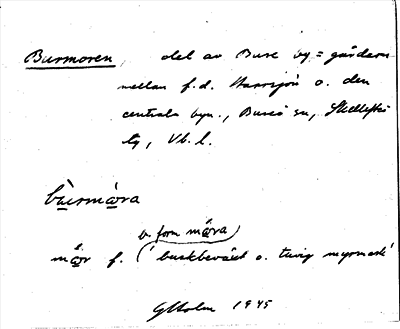 Burmoren, del av Bure by = gårdarna
mellan f.d. Harrsjön o. den
centrala byn, Bureå sn, Skellefteå
tg, Vb. l.
bùrmå̀ra
b. form må̀ra
må̀r f. (buskbeväxt o. tuvig myrmark'
GHolm 1945